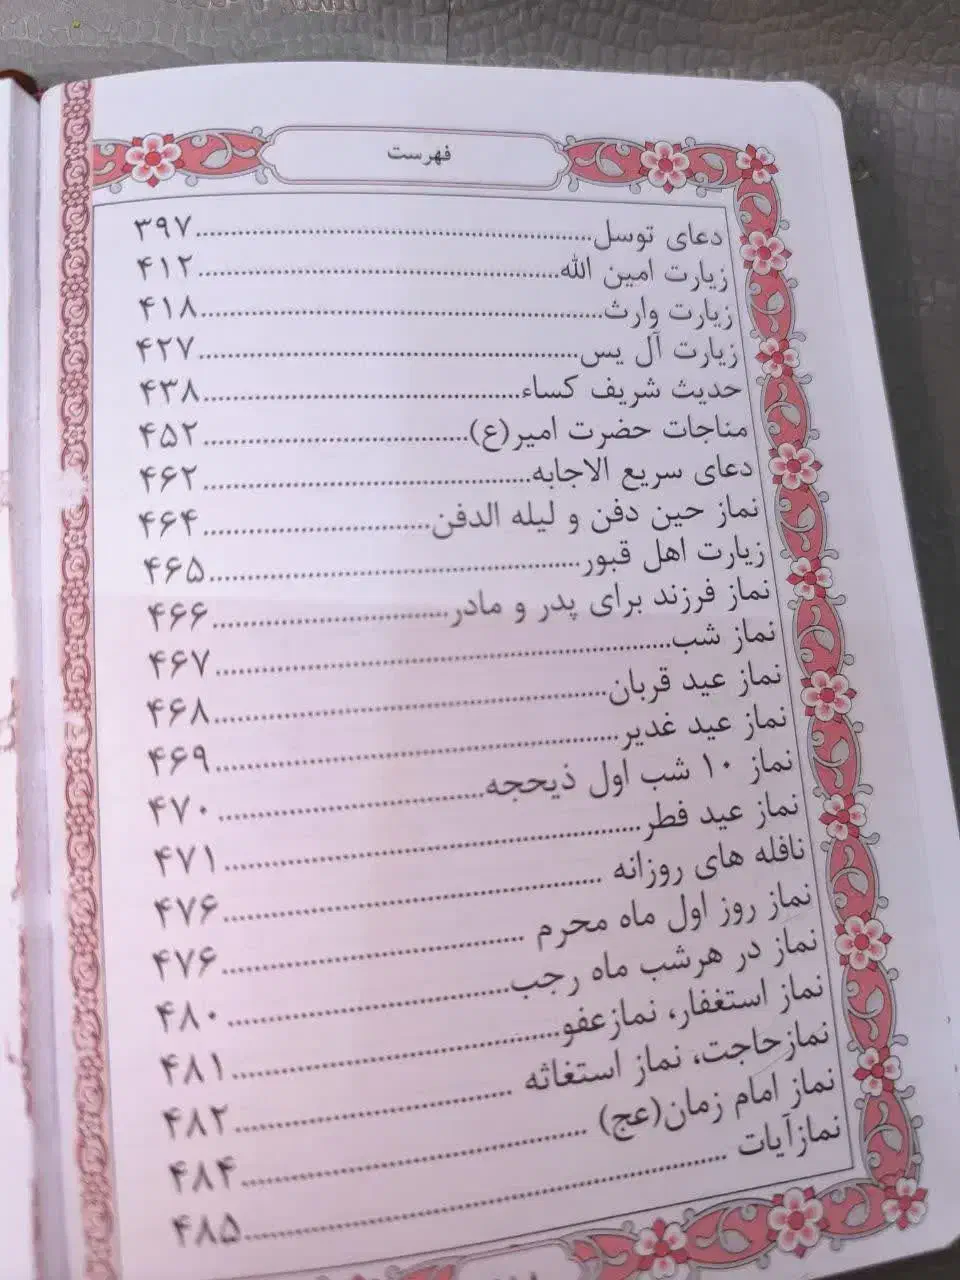 فهرست
دعای توسل........................................۳۹۷
زیارت امین الله........................................۴۱۲
زیارت وارث........................................۴۱۸
زیارت آل یس........................................۴۲۷
حدیث شریف کساء........................................۴۳۸
مناجات حضرت امیر(ع)........................................۴۵۲
دعای سریع الاجابه........................................۴۶۲
نماز حین دفن و لیله الدفن........................................۴۶۴
زیارت اهل قبور........................................۴۶۵
نماز فرزند برای پدر و مادر........................................۴۶۶
نماز شب........................................۴۶۷
نماز عید قربان........................................۴۶۸
نماز عید غدیر........................................۴۶۹
نماز ۱۰ شب اول ذیحجه........................................۴۷۰
نماز عید فطر........................................۴۷۱
نافله های روزانه ........................................۴۷۶
نماز روز اول ماه محرم ........................................۴۷۶
نماز در هرشب ماه رجب........................................۴۸۰
نماز استغفار، نمازعفو........................................۴۸۱
نمازحاجت، نماز استغاثه ........................................۴۸۲
نماز امام زمان(عج) ........................................۴۸۴
نمازآیات ........................................۴۸۵